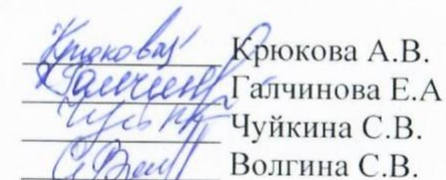 Крюкова А.В.
Галчинова Е.А
Чуйкина С.В.
Волгина С.В.